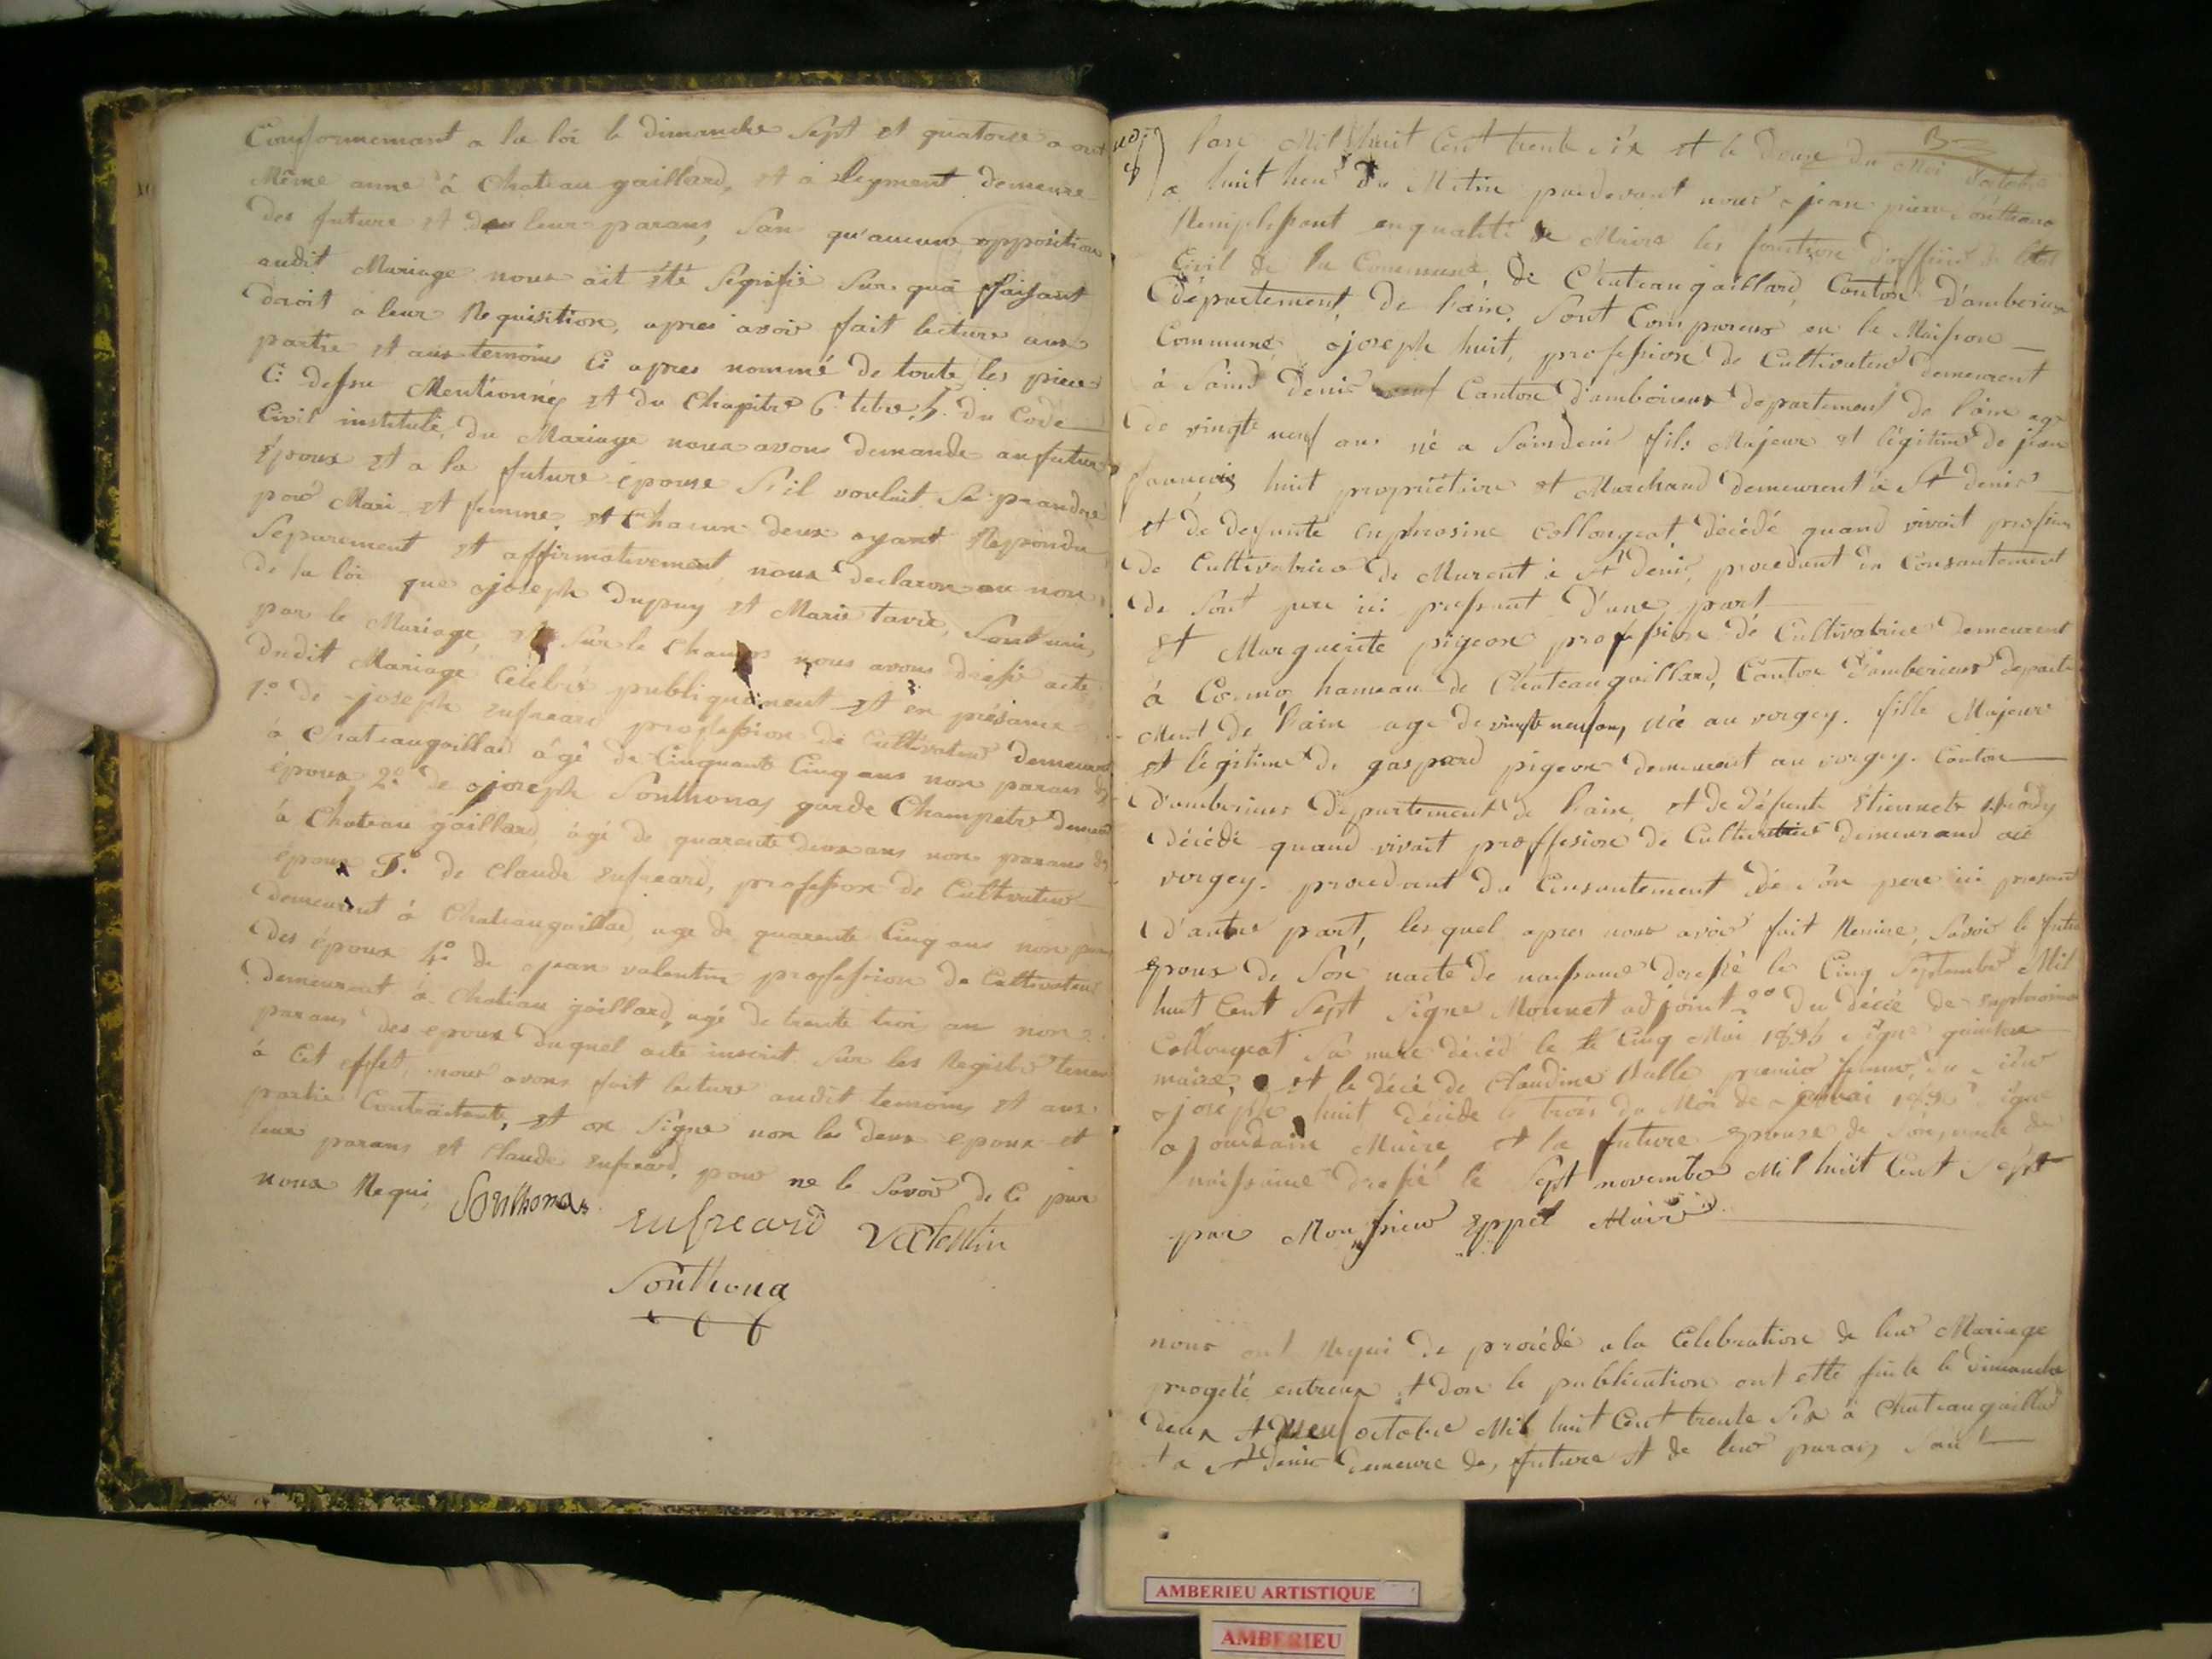 Conformemant a la loi le dimanche sept et quatorze aout
Même anne à Chateau gaillard, et a leyment demeure
des future et de leur parans, san qu'aucune opposition
audit Mariage nous ait été signifié sur quoi faisant
droit a leur Requisition, apres avoir fait lecture aux
partie et aux temoins Ci apres nommé de toute les piece
Ci dessu Mentionnés et du Chapitre 6 titre 5. du Code
Civil institulé, du Mariage nous avons demande au futur
époux et a la future épouse s'il voulait se prandre
pour Mari et femme, et Chacun deux ayant Repondu
Séparement et affirmativement, nous declaron au non
de la loi que joseph dupuy et Marie tavie, sont uni,
par le Mariage, et sur le Champs nous avons dressé acte
dudit Mariage Célébré publiquement et en présance
1.° de joseph enfreard profession de Cultivateur demeurant
à Chateaugaillard âgé de Cinquante Cinq ans non parans des
époux 2.° de joseph Sonthonas garde Champetre demeurant
à Chateau gaillard, âgé de quarente deux ans non parans des
époux 3.° de Claude enfreard, profession de Cultivateur
demeurent à Chateaugaillard, age de quarente Cinq ans non parans
des époux 4.° de jean valentin profession de Cultivateur
demeurent à Chateau gaillard, agé de trente trois an non
parans des epoux duquel acte inscrit sur les Registre tenu
à Cet effet, nous avons fait lecture audit temoins et aux
partie Contractente, et on Signe non les deux epoux et
leur parans et Claude enfreard, pour ne le savoir de Ce par
nous Requi, Sonthonas
enfreard Valentin
Sonthona
N°
6
B3
lan Mil huit Cent trente Six et le douze du Moi d'octobre
a huit heur du Matin pardevant nous jean pierre Sonthona
Remplissant en qualité de Maire les fonction d'officier de l'état
Civil de la Commune, de Chateaugaillard, Canton d'amberieux
département, de l'ain. Sont Comparus en la Maison
Commune, joseph huit, profession de Cultivateur demeurent
à Saind denis Canton d'amberieux departement de l'ain age
de vingte neuf ans né a Saindenis fils Majeur et légitime de jean
francois huit propriétaire et Marchand demeurent a St denis
et de defunte euphrosine Collongeat décédé quand vivait profession
de Cultivatrice de Murent à St denis, procedant du Consantement
de sont pere ici present d'une part
et Marguerite pigeon profession de Cultivatrice demeurent
à Cormoz hameau de Chateaugaillard, Canton d'amberieux departe
Ment de l'ain age de vingte neuf ans, née au vorgey. fille Majeure
et légitime de gaspard pigeon demeurent au vorgey. Canton
d'amberieux departement de l'ain, et de défunte étiennete
décédé quand vivait proffesion de Cultivatrice demeurand au
vorgey. procedant du Consantement de son pere ici present
d'autre part, les quel apres nous avoir fait Remise, Savoir le futur
époux de son nacte de naissance dressé le Cinq Septembre Mil
huit Cent Sept Signe Monnet adjoint 2° du décée de euphrosine
Collongeat sa mere décéd le Cinq Mai Signe
maire, et le décé de Claudine premier femme du
joseph huit décéde le trois du Moi de Signe
jourdain Maire et la future Epouse de son nacte de
naissance dressé le Sept novembre Mil huit Cent Sept
par Monsieur Eppel Maire
nous ont Requi de procédé a la Celebration de leur Mariage
progeté entreux et don le publication ont etté faite le dimanche
deux et neuf octobre Mil huit Cent trente Six à Chateaugaillard
et a St denis demeure des future et de leur parans, san
AMBERIEU ARTISTIQUE
AMBERIEU